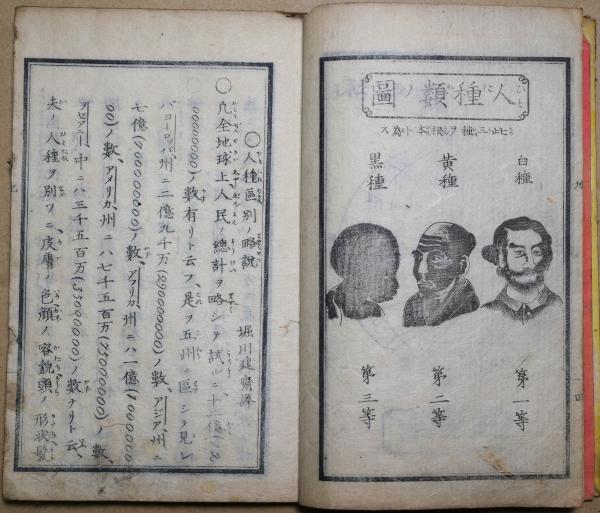 人種類ノ圖
此三種ヲ根本ト為ス
白種
第一等
黄種
第二等
黒種
第三等
〇人種區別ノ略説 堀川健齋譯
〇凡全地球上人民ノ總計ヲ略シテ試ルニ十二億(12
00000000)ノ數有リト云フ、是ヲ五州ニ區シテ見レ
バヨーロッパ州ニ二億九千万(290000000)ノ數、アジア州ニ
七億(700000000)ノ數、アフリカ州ニハ一億(1000000
00)ノ數、アメリカ州ニハ七千五百万(75000000)ノ數、
ヲセアニー中ニハ三千五百万(35000000)ノ數ナリト云、
夫ノ人種ヲ別ツニ皮膚ノ色顔ノ容貌頭ノ形状髪